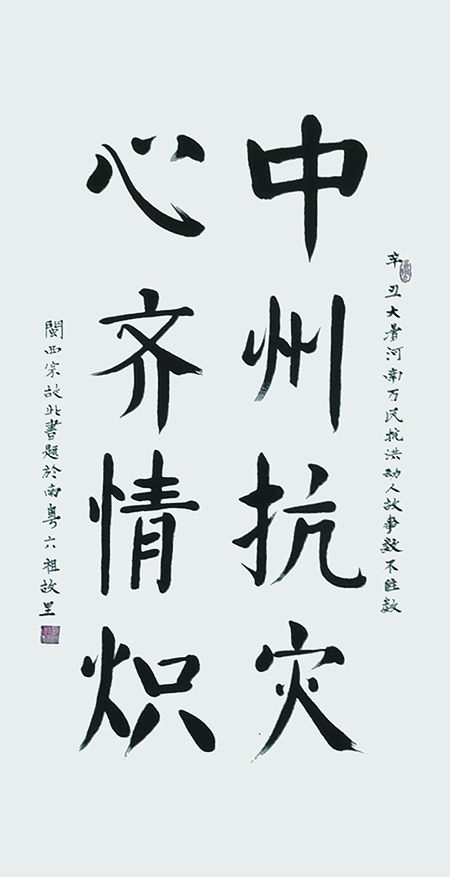 辛丑大暑河南万民抗洪动人故事数不胜数
中州抗灾
心齐情炽
閩西宗故此書題於南粤六祖故里